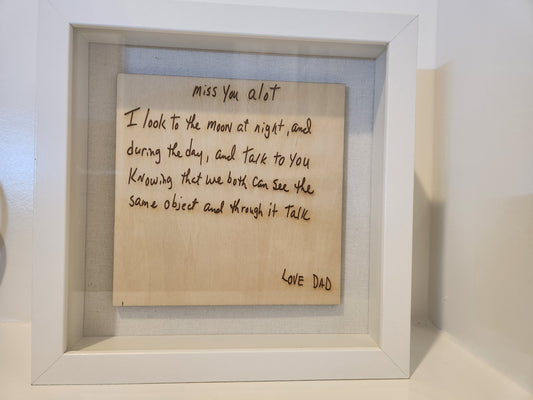 miss You alot
I look to the moon at night, and
during the day, and talk to you
Knowing that we both can see the
same object and through it talk
LOVE DAD